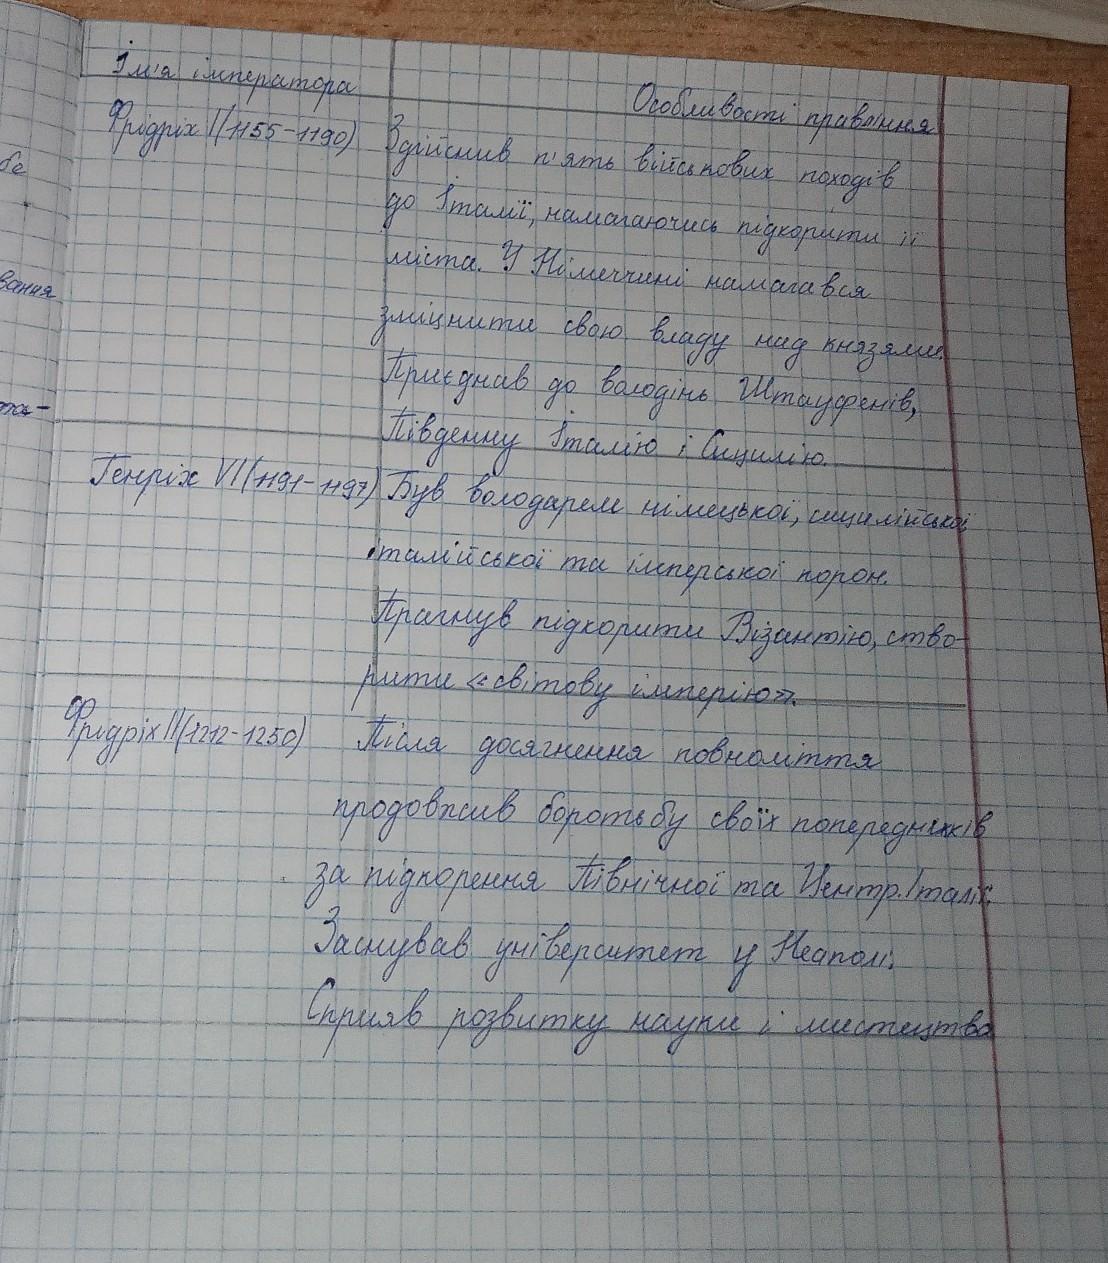 Ім'я імператора
Особливості правління
Фрідріх I (1155-1190)
Здійснив п'ять військових походів
до Італії, намагаючись підкорити її
міста. У Німеччині намагався
зміцнити свою владу над князями.
Приєднав до володінь Штауфенів,
Південну Італію і Сицилію.
Генріх VI (1191-1197)
Був володарем німецької, сицилійської
італійської та імперської корон.
Прагнув підкорити Візантію, ство-
рити «світову імперію».
Фрідріх II (1212-1250)
Після досягнення повноліття
продовжив боротьбу своїх попередників
за підкорення Північної та Центр. Італії.
Заснував університет у Неаполі.
Сприяв розвитку науки і мистецтва
бе
вання
та-